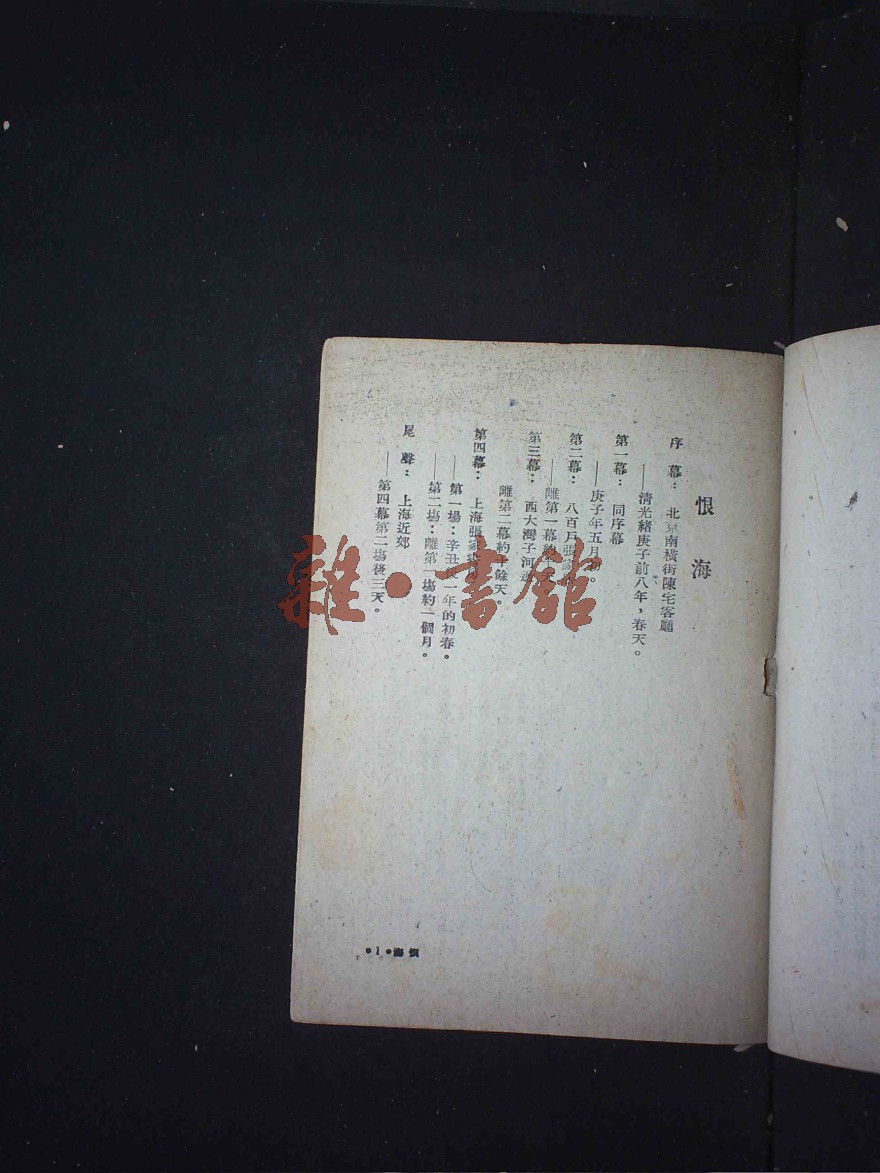 恨海
序幕：北京南橫街陳宅客廳
——清光緒庚子前八年，春天。
第一幕：同序幕
——庚子年五月初。
第二幕：八百戶張家
——離第一幕約十天。
第三幕：西大灣子河邊
離第二幕約十餘天。
第四幕：上海張家
——第一場：辛丑後一年的初春。
——第二場：離第一場約一個月。
尾聲：上海近郊
——第四幕第二場後三天。
•1•海恨
雜•書館